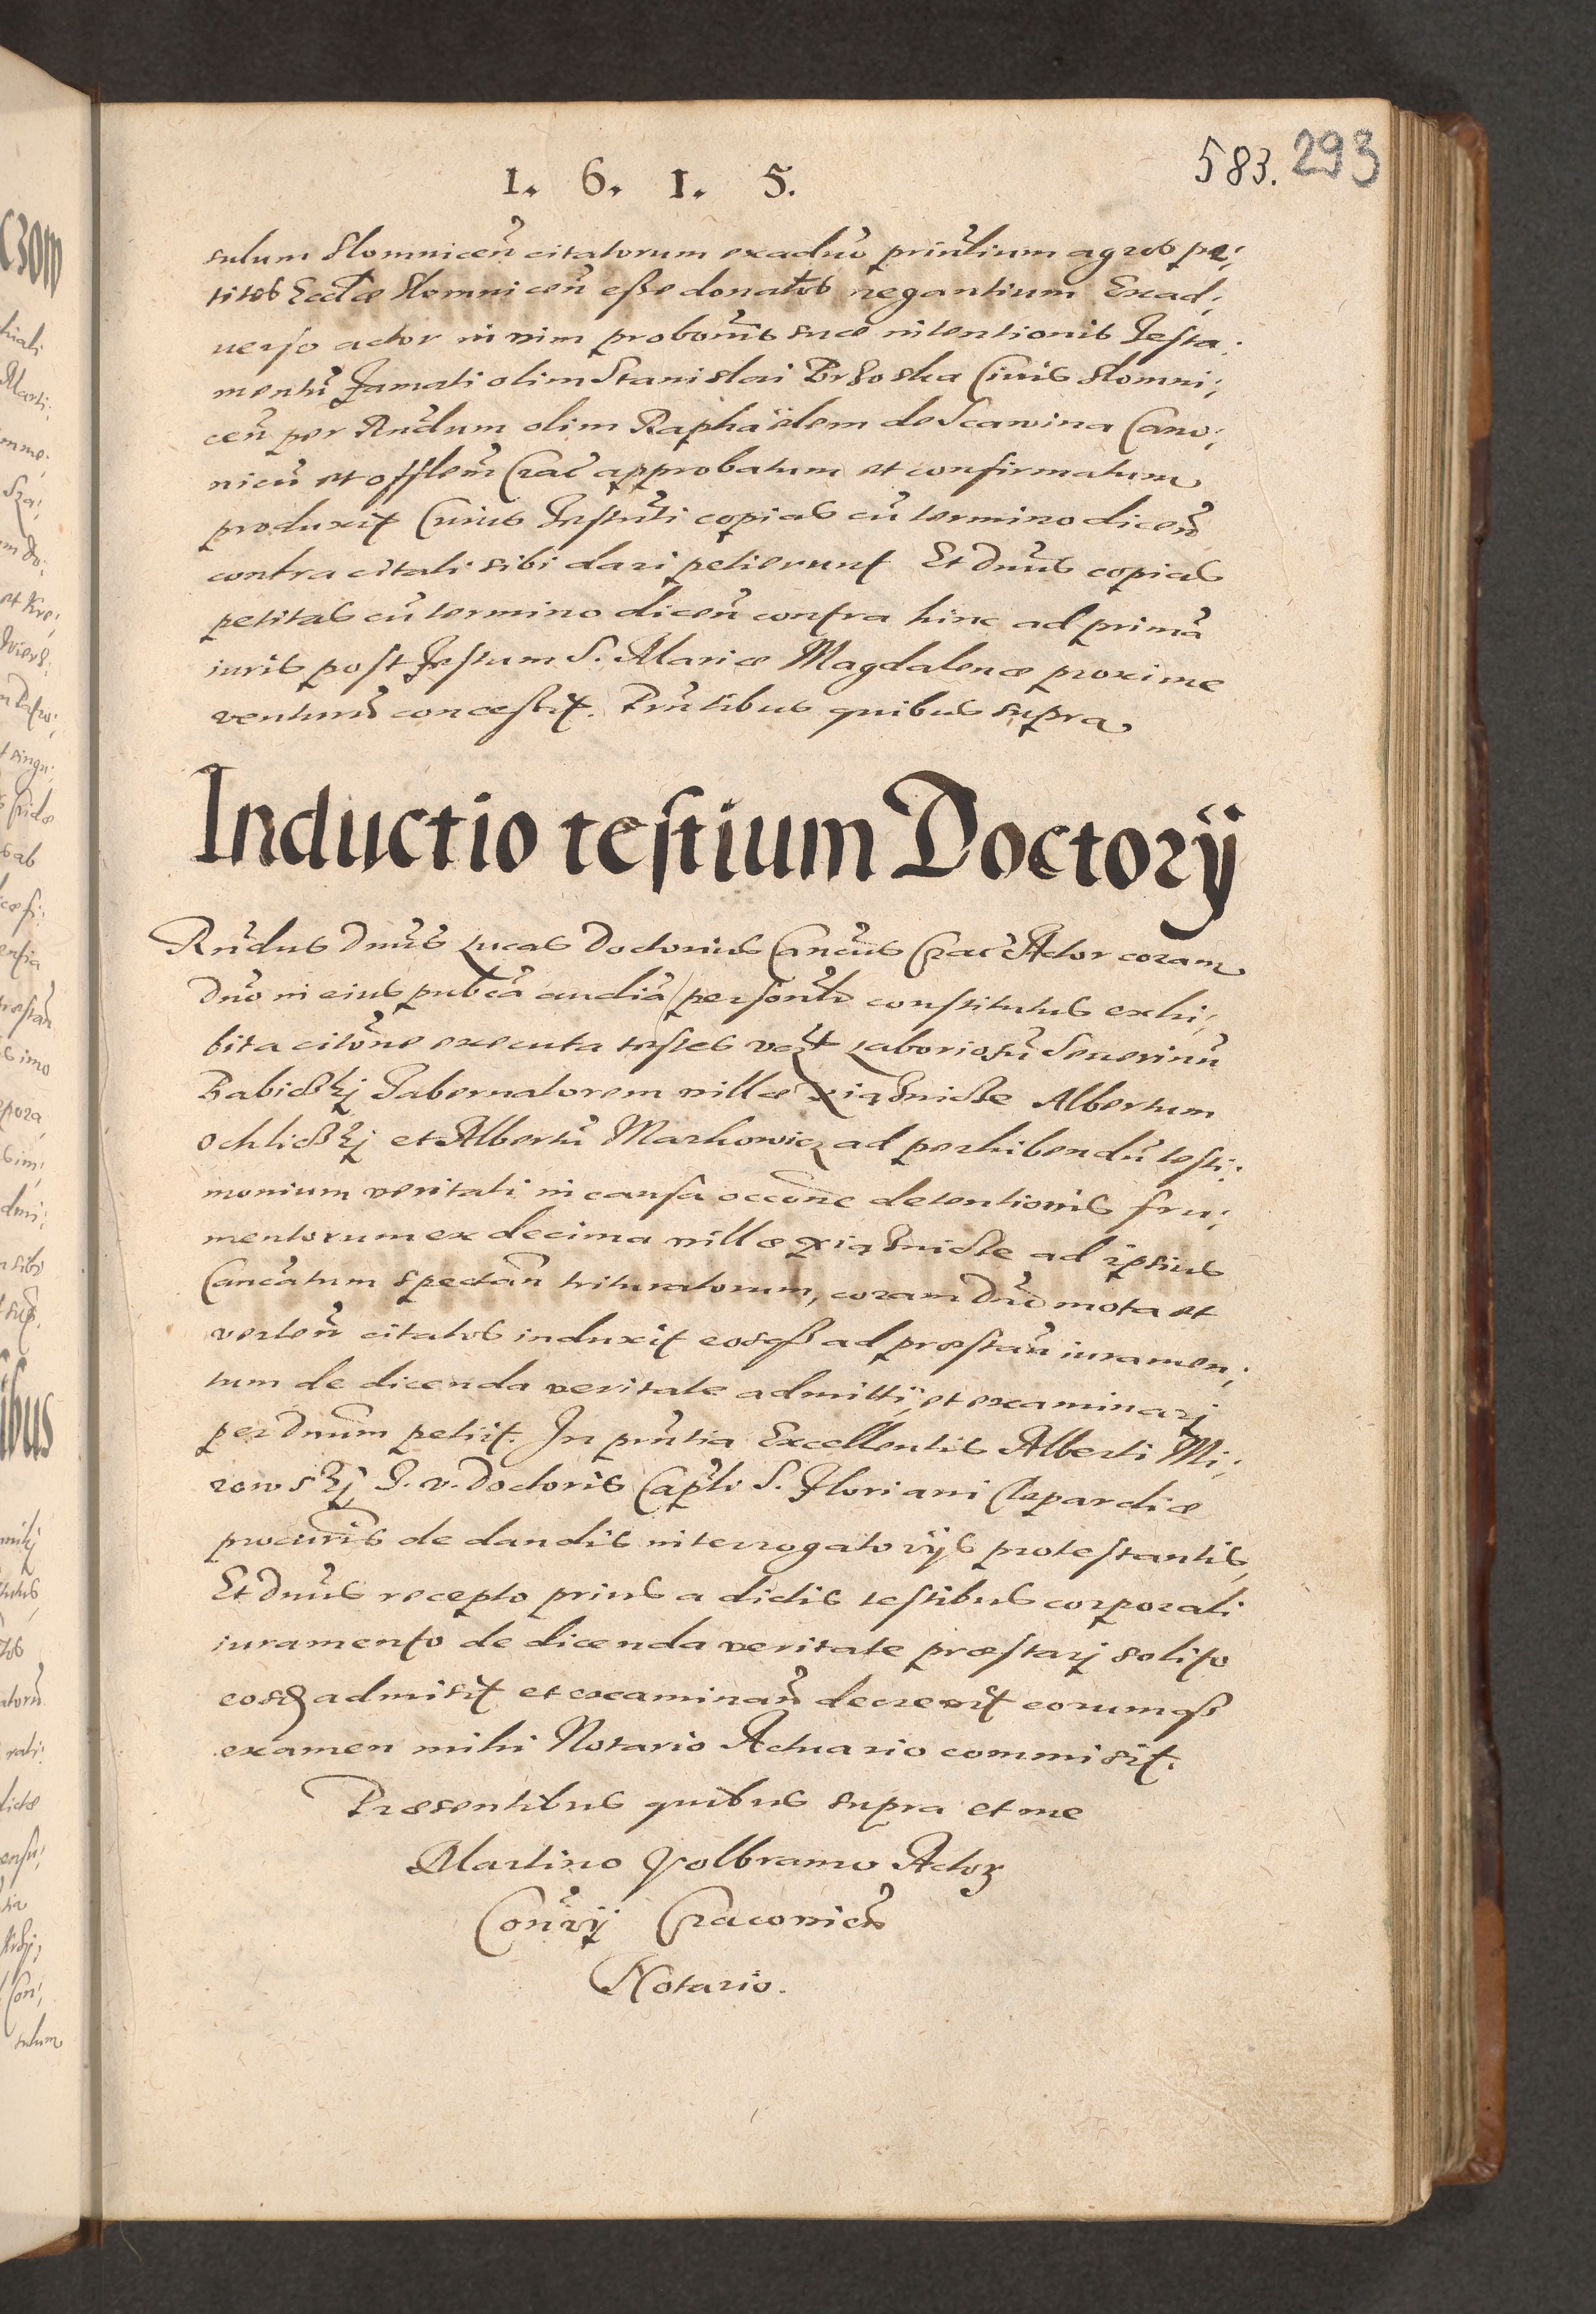 1. 6. 1. 5.
583. 293
sulum Slomnicen̄ citatorum exaduo prin̄tium agros pe:
titos Eccl̄æ Slomnicen̄ esse donatos negantium Exad:
uerso actor in vim probonis suæ intentionis Testa:
mentū famati olim Stanislai Civis Slomni:
cen̄ per Rn̄dum olim Raphäelem de Scawina Cano:
nicū et offlem̄ Crac̄ approbatum et confirmatum
produxit Cuius Instrūti copias cū termino dicen̄
contra citati sibi dari petierunt Et Dnūs copias
petitas cū termino dicen̄ contra hinc ad primā
iuris post Festum S. Mariæ Magdalenæ proxime
venturū concessit. Prn̄tibus quibus supra
Inductio testium Doctorij
Rn̄dus Dnūs Lucas Doctorius Cancūs Crac̄ Actor coram
Dno in eius pub̄ca audiā personl̄r constitutus exhi:
bita citōne executa testes vez̄t Laboriosū Seuerinū
Tabernatorem villæ Xiąznicze Albertum
et Albertū Markowicz ad perhibendū testi:
monium veritati in causa occōne detentionis fru:
mentorum ex decima villæ Xiąznicze ad ipsius
Cancātum spectan̄ trituratorum, coram Dn̄o mota et
verten̄ citatos induxit eosqʒ ad præstan̄ iuramen:
tum de dicenda veritate admitti, et examinarj
per Dnūm petiit. In prn̄tia Excellentis Alberti Mi:
rowskj I. v. Doctoris Capl̄i S. Floriani Clepardiæ
procur̄is de dandis interrogatorijs protestantis,
Et Dnūs recepto prius a dictis testibus corporali
iuramento de dicenda veritate præstarj solito
eosqʒ admisit et examinan̄ decrevit eorumqʒ
examen mihi Notario Actuario commisit.
Præsentibus quibus supra et me
Martino Volbramo Actoʒ
Con̄rij Cracovien̄
Notario.